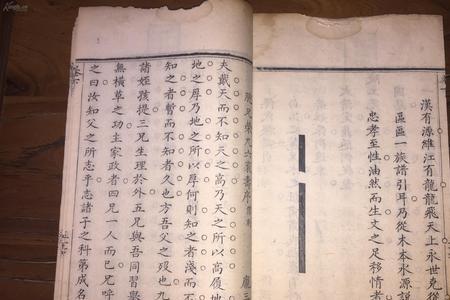 漢有源維江有龍龍飛天上永世克
區區一族譜引耳乃從木本水源說
忠孝至性油然而生文之足移情
夫戴天而不知天之高乃天之所以為高履地
地之厚乃地之所以厚何則知之者淺而不
知之者暫而不知者久也方吾父之歿也九
諸姪孩提三兄生理於外五兄與吾同習
無橫草之功主家政者四兄一人而已兄呼
之曰汝知父之所志乎志諸子之科第成名